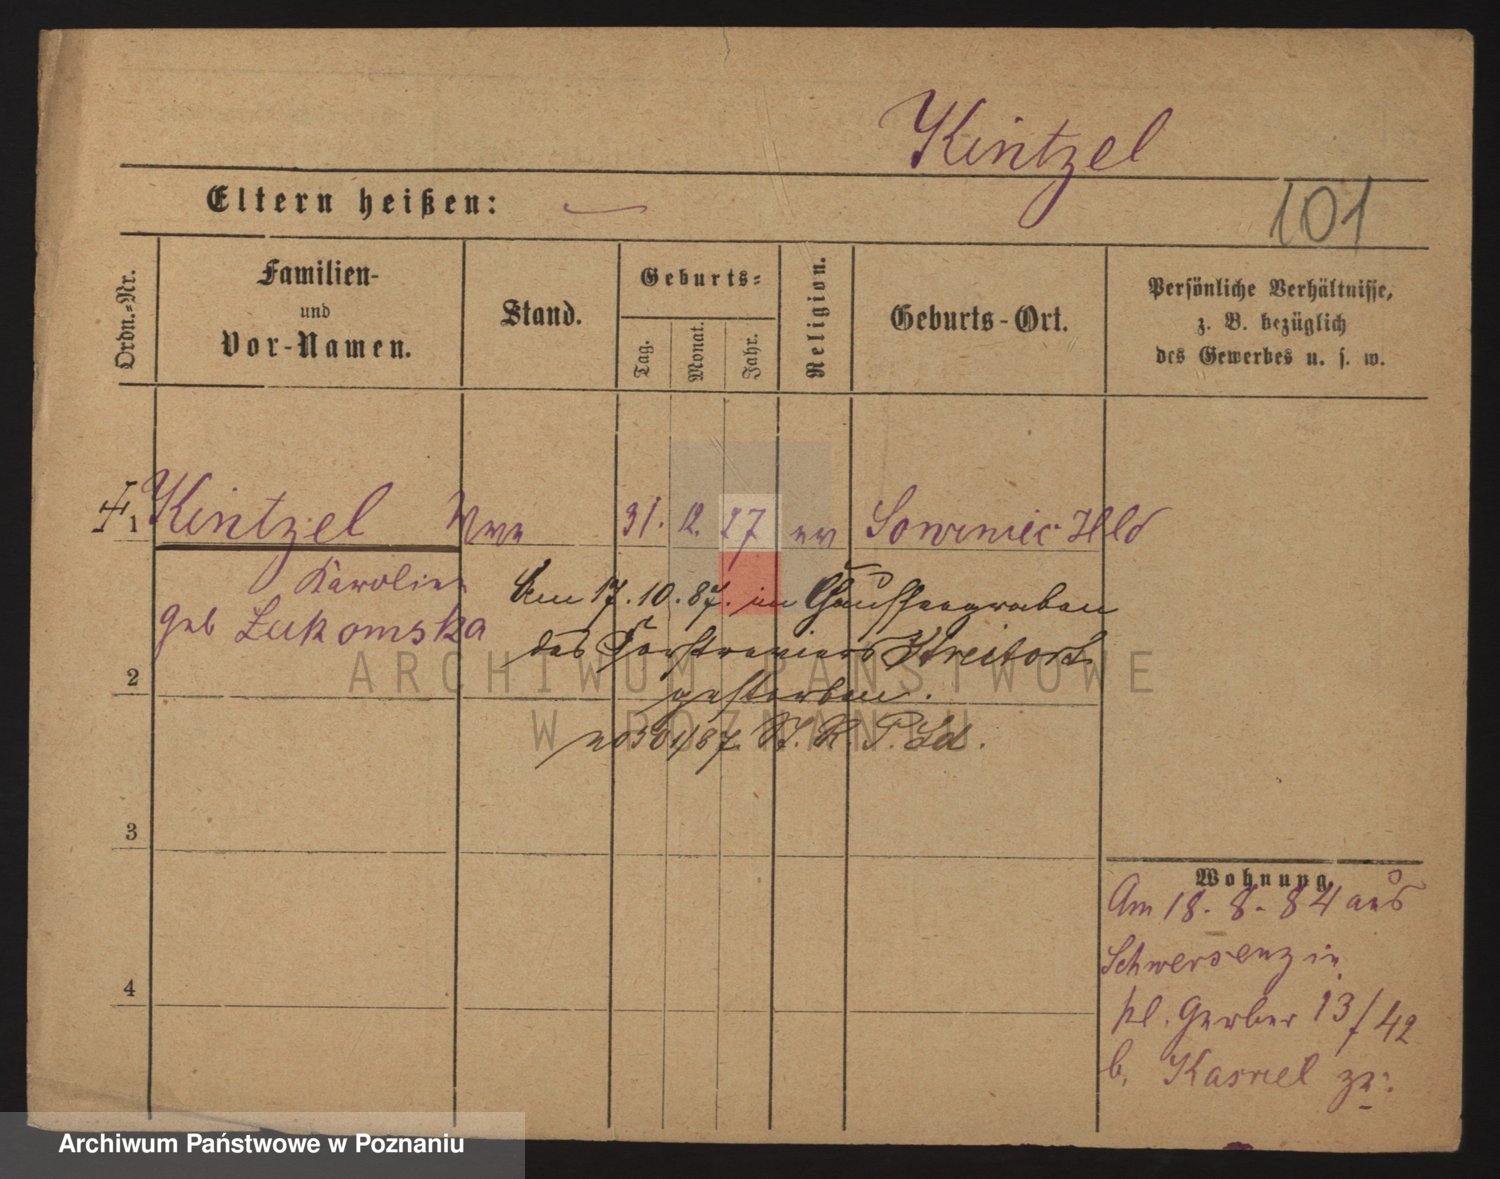 Kintzel
101
Eltern heißen:
Ordn.-Nr.
Familien-
und
Vor-Namen.
Stand.
Geburts-
Tag.
Monat.
Jahr.
Religion.
Geburts-Ort.
Persönliche Verhältnisse,
z. B. bezüglich
des Gewerbes u. s. w.
1 Kintzel Wwe 31. 12. 27 ev Sowiniec Hld
Karoline
geb Lukomska
Am 17. 10. 87. in Chausseegraben
des Forstreviers
gestorben.
2
3
4
Wohnung.
Am 18. 8. 84 aus
Schwersenz in
kl. Gerber 13/42
b. Kasriel zu.
ARCHIWUM PAŃSTWOWE
W POZNANIU
Archiwum Państwowe w Poznaniu